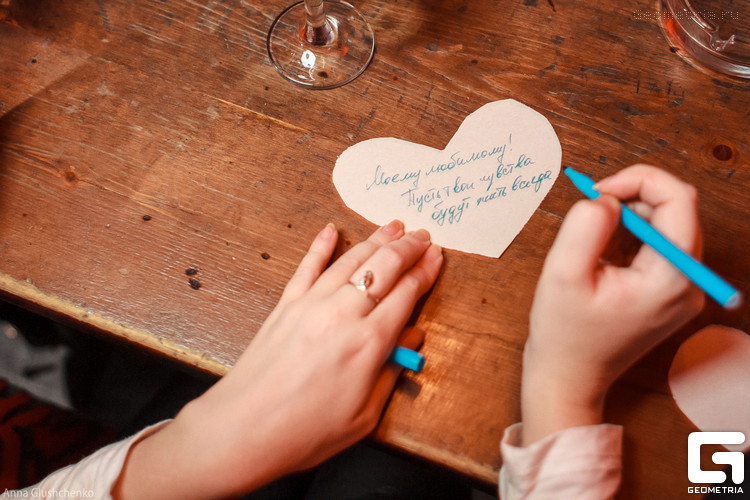 geometria.ru
Моему любимому!
Пусть твои чувства
будут жить всегда
Anna Glushchenko
GEOMETRIA